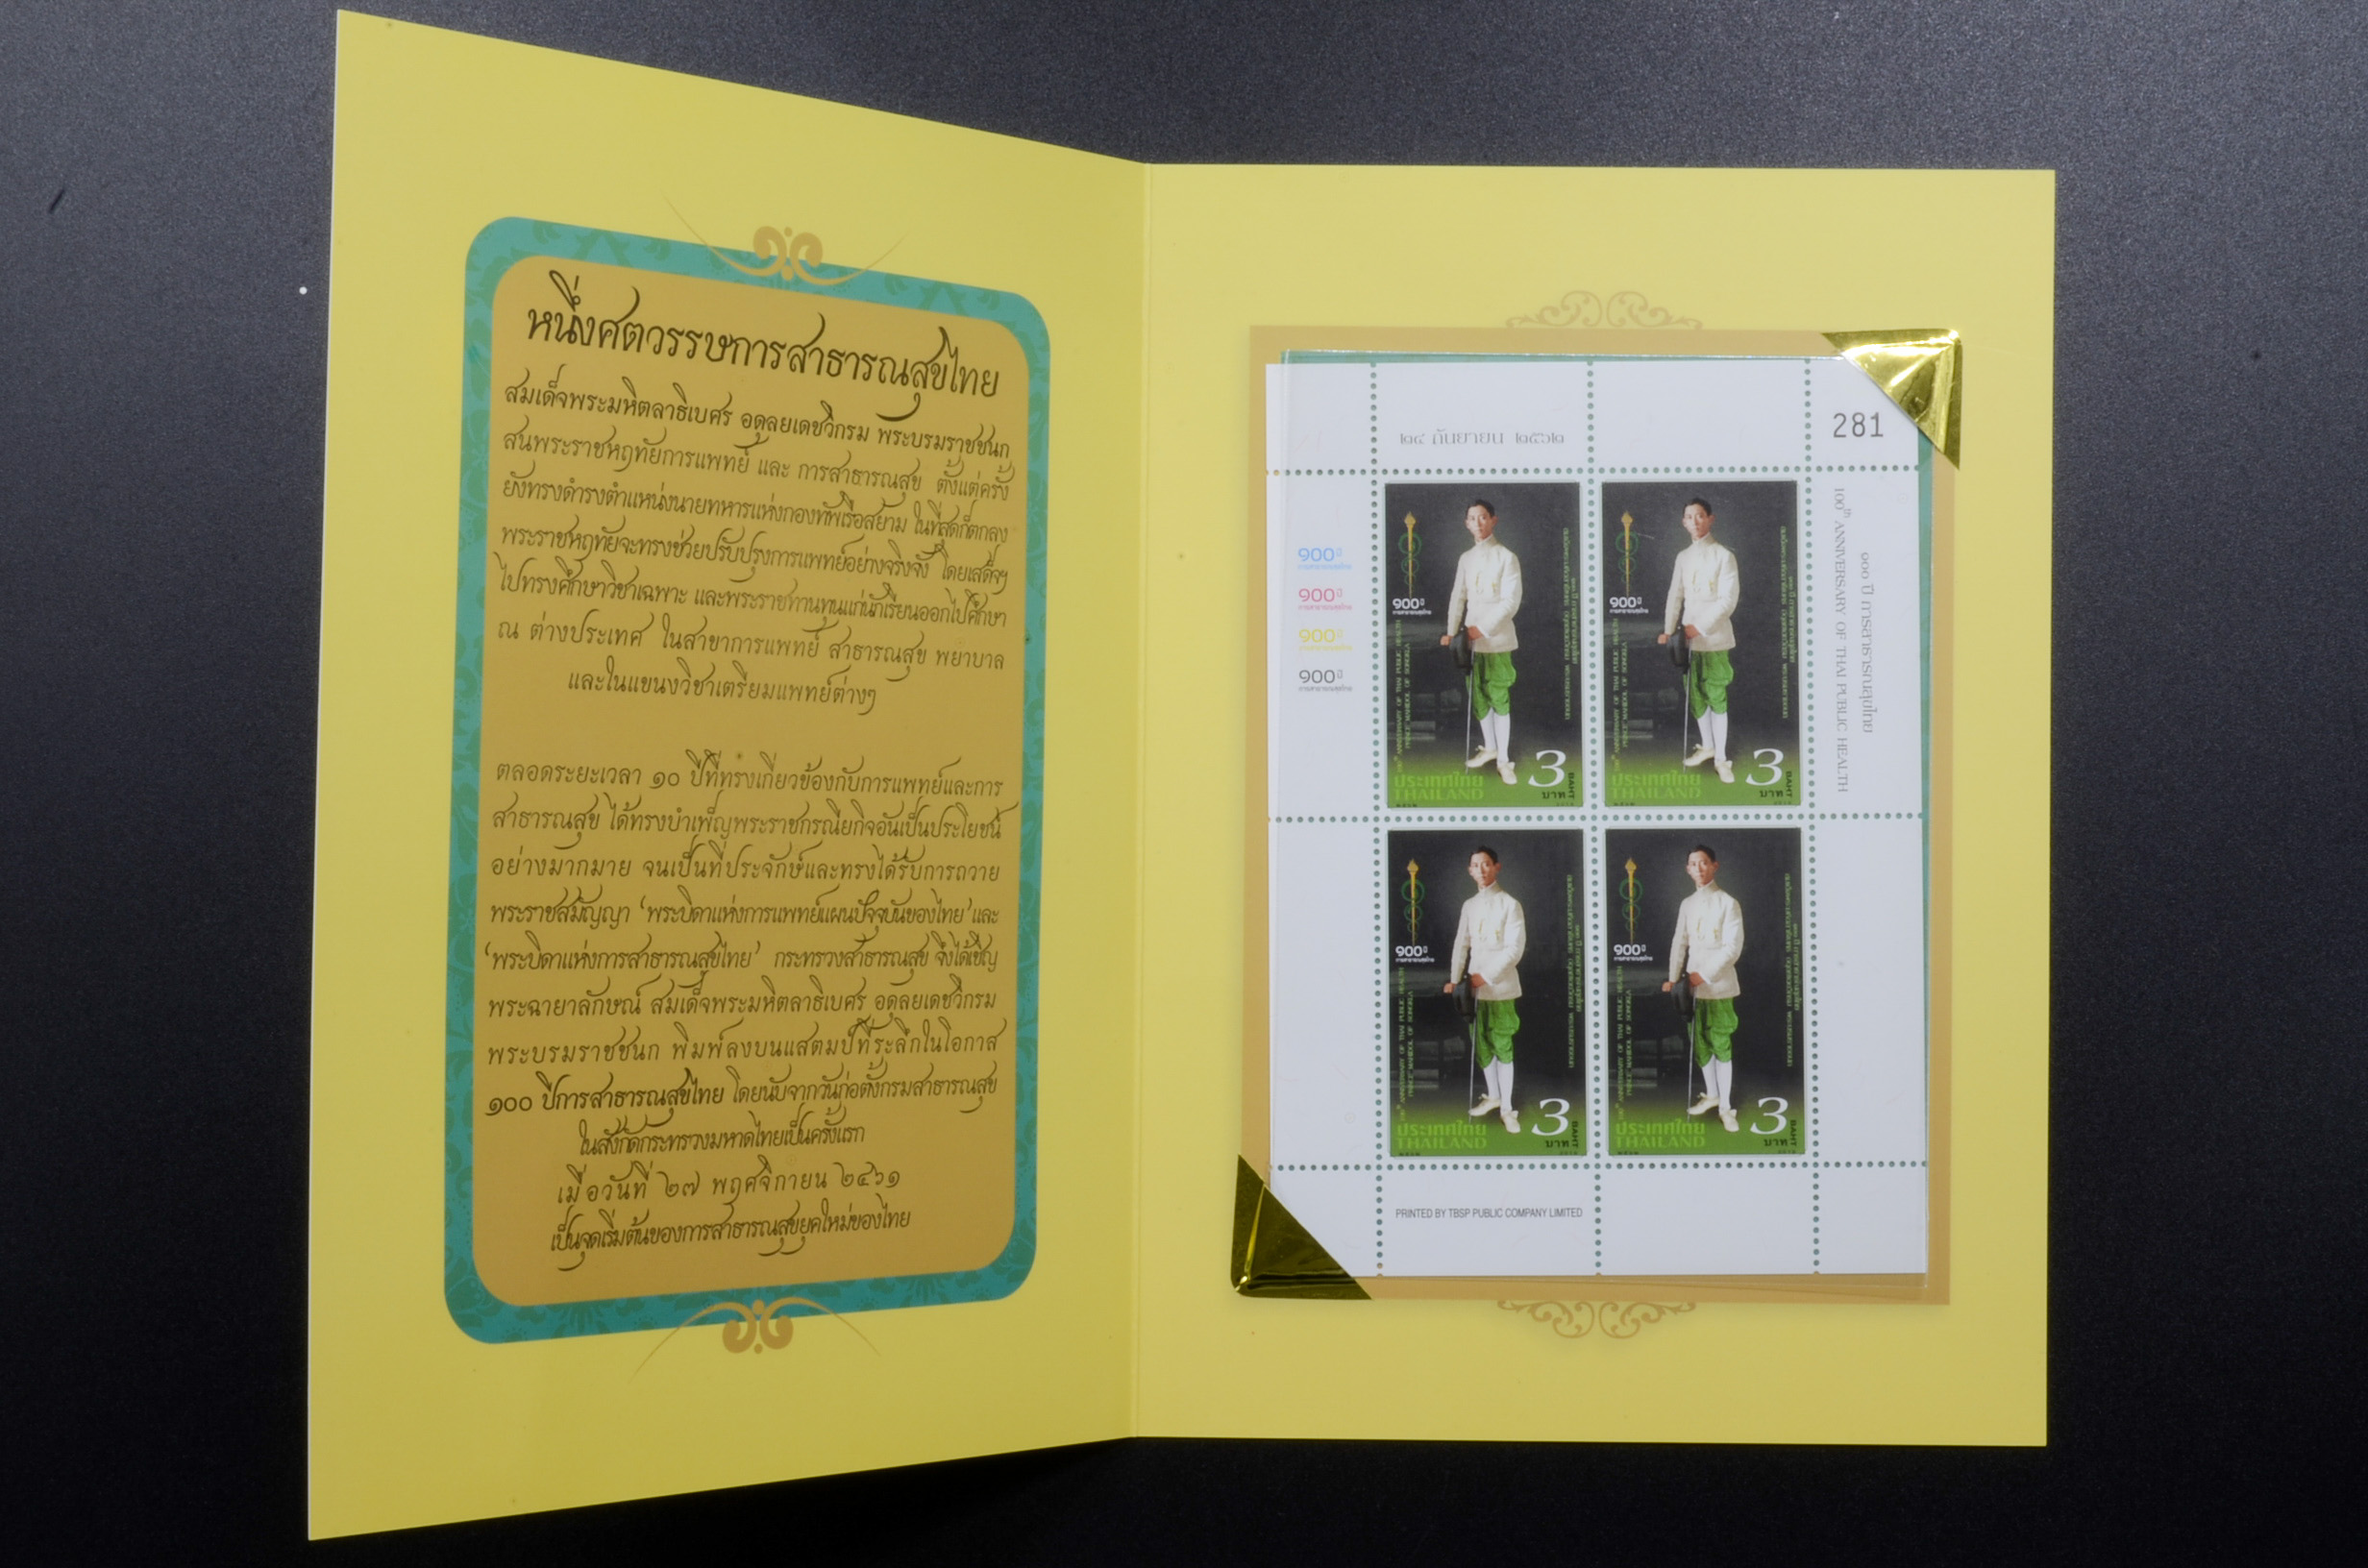 หนึ่งศตวรรษการสาธารณสุขไทย
สมเด็จพระมหิตลาธิเบศร อดุลยเดชวิกรม พระบรมราชชนก
สนพระราชหฤทัยการแพทย์ และ การสาธารณสุข ตั้งแต่ครั้ง
ยังทรงดำรงตำแหน่งนายทหารแห่งกองทัพเรือสยาม ในที่สุดก็ตกลง
พระราชหฤทัยจะทรงช่วยปรับปรุงการแพทย์อย่างจริงจัง โดยเสด็จฯ
ไปทรงศึกษาวิชาเฉพาะ และพระราชทานทุนแก่นักเรียนออกไปศึกษา
ณ ต่างประเทศ ในสาขาการแพทย์ สาธารณสุข พยาบาล
และในแขนงวิชาเตรียมแพทย์ต่างๆ
ตลอดระยะเวลา ๑๐ ปีที่ทรงเกี่ยวข้องกับการแพทย์และการ
สาธารณสุข ได้ทรงบำเพ็ญพระราชกรณียกิจอันเป็นประโยชน์
อย่างมากมาย จนเป็นที่ประจักษ์และทรงได้รับการถวาย
พระราชสมัญญา ‘พระบิดาแห่งการแพทย์แผนปัจจุบันของไทย’ และ
‘พระบิดาแห่งการสาธารณสุขไทย’ กระทรวงสาธารณสุข จึงได้เชิญ
พระฉายาลักษณ์ สมเด็จพระมหิตลาธิเบศร อดุลยเดชวิกรม
พระบรมราชชนก พิมพ์ลงบนแสตมป์ที่ระลึกในโอกาส
๑๐๐ ปีการสาธารณสุขไทย โดยนับจากวันก่อตั้งกรมสาธารณสุข
ในสังกัดกระทรวงมหาดไทยเป็นครั้งแรก
เมื่อวันที่ ๒๗ พฤศจิกายน ๒๔๖๑
เป็นจุดเริ่มต้นของการสาธารณสุขยุคใหม่ของไทย
๒๔ กันยายน ๒๕๖๒
281
๑๐๐ ปี การสาธารณสุขไทย
100th ANNIVERSARY OF THAI PUBLIC HEALTH
900 ปี
การสาธารณสุขไทย
900 ปี
การสาธารณสุขไทย
900 ปี
การสาธารณสุขไทย
900 ปี
การสาธารณสุขไทย
900 ปี
การสาธารณสุขไทย
100th ANNIVERSARY OF THAI PUBLIC HEALTH
PRINCE MAHIDOL OF SONGKLA
ประเทศไทย
THAILAND
3
บาท BAHT
900 ปี
การสาธารณสุขไทย
100th ANNIVERSARY OF THAI PUBLIC HEALTH
PRINCE MAHIDOL OF SONGKLA
ประเทศไทย
THAILAND
3
บาท BAHT
900 ปี
การสาธารณสุขไทย
100th ANNIVERSARY OF THAI PUBLIC HEALTH
PRINCE MAHIDOL OF SONGKLA
ประเทศไทย
THAILAND
3
บาท BAHT
900 ปี
การสาธารณสุขไทย
100th ANNIVERSARY OF THAI PUBLIC HEALTH
PRINCE MAHIDOL OF SONGKLA
ประเทศไทย
THAILAND
3
บาท BAHT
PRINTED BY TBSP PUBLIC COMPANY LIMITED